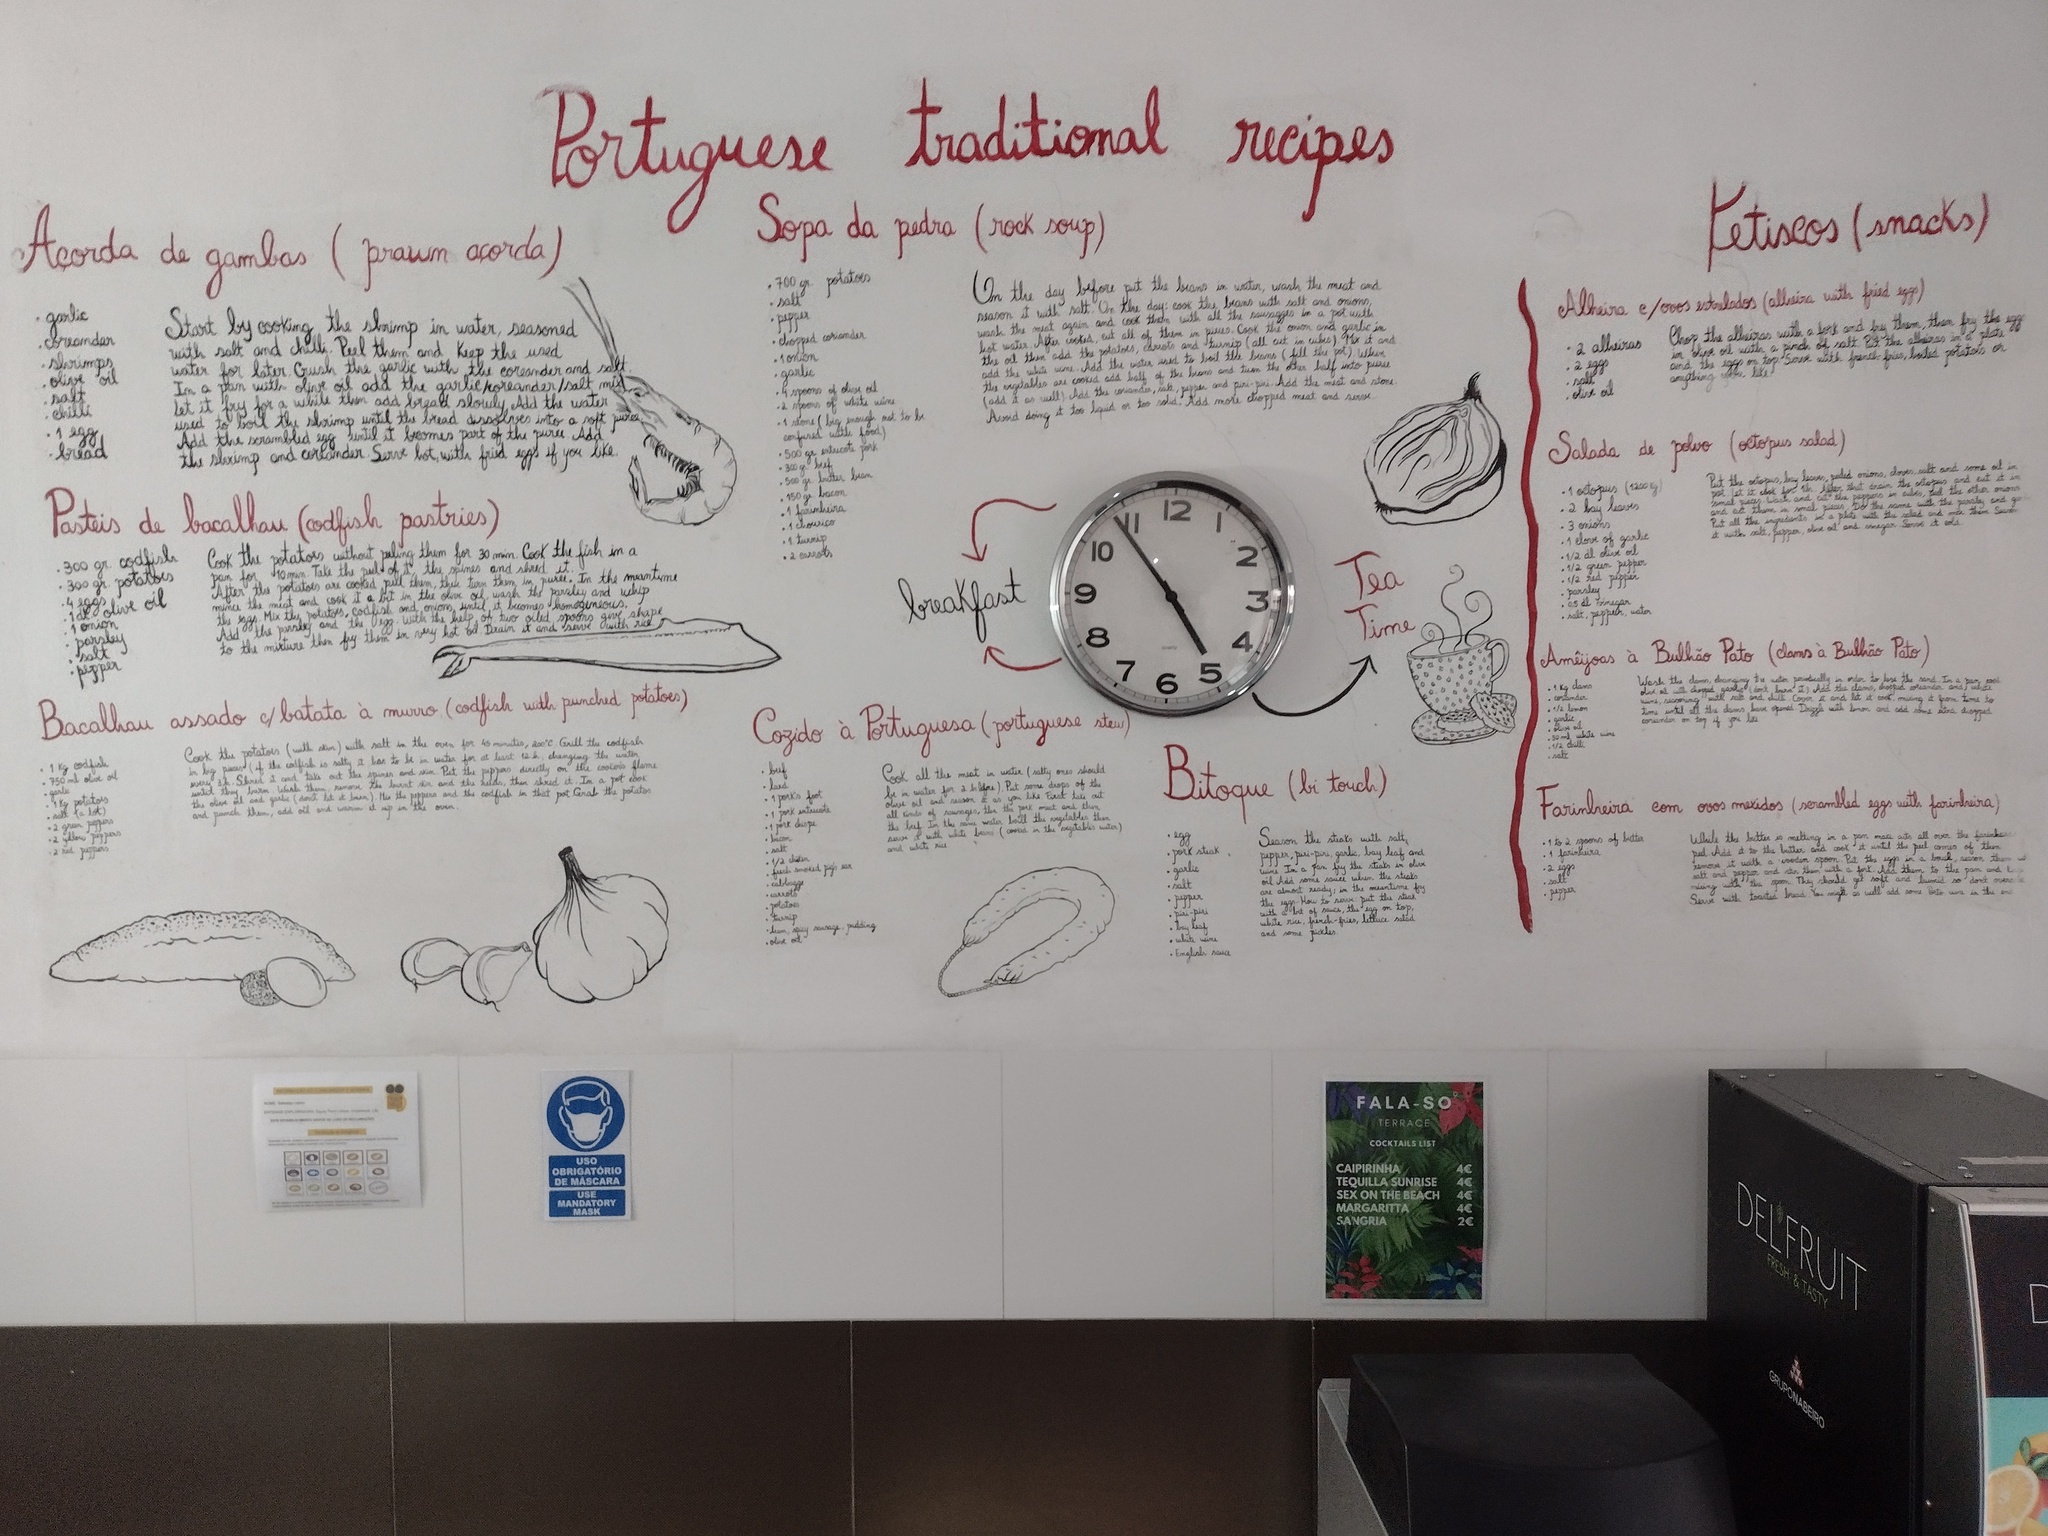 Portuguese traditional recipes
Açorda de gambas (prawn açorda)
• garlic
• coreander
• shrimps
• olive oil
• salt
• chilli
• 1 egg
• bread
Start by cooking the shrimp in water, seasoned
with salt and chilli. Peel them and Keep the used
water for later. Crush the garlic with the coreander and salt.
In a pan with olive oil add the garlic/coreander/salt mix
let it fry for a while then add bread slowly. Add the water
used to boil the shrimp until the bread dissolves into a soft puree
Add the scrambled egg until it becomes part of the puree. Add
the shrimp and coriander. Serve hot, with fried eggs if you like.
Pasteis de bacalhau (codfish pastries)
• 300 gr. codfish
• 300 gr. potatoes
• 4 eggs
• 1dl olive oil
• 1 onion
• parsley
• salt
• pepper
Cook the potatoes without peling them for 30 min. Cook the fish in a
pan for 10min. Take the peel of it, the spines and shred it.
After the potatoes are cooked pell them, then turn them in puree. In the meantime
mince the meat and cook it a bit in the olive oil, wash the parsley and whip
the eggs. Mix the potatoes, codfish and onions, until it becomes homogenious.
Add the parsley and the egg. With the help of two oiled spoons give shape
to the mixture then fry them in very hot oil. Drain it and serve with rice
Bacalhau assado c/batata à murro (codfish with punched potatoes)
• 1 Kg codfish
• 750 ml olive oil
• garlic
• 1 Kg potatoes
• salt (a lot)
• 2 green peppers
• 2 yellow peppers
• 2 red peppers
Cook the potatoes (with skin) with salt in the oven for 45 minutes, 200°C. Grill the codfish
in big pieces (if the codfish is salty it has to be in water for at least 12 h, changing the water
every 3h. Shred it and take out the spines and skin. Put the peppers directly on the cooker's flame
until they burn. Wash them, remove the burnt skin and the seeds, then shred it. In a pot cook
the olive oil and garlic (don't let it burn). Mix the peppers and the codfish in that pot. Grab the potatoes
and punch them, add oil and warm it up in the oven.
Sopa da pedra (rock soup)
• 700 gr. potatoes
• salt
• pepper
• chopped coriander
• 1 onion
• garlic
• 4 spoons of olive oil
• 2 spoons of white wine
• 1 stone (big enough not to be
confused with food)
• 500 gr. entrecote pork
• 300 gr. beef
• 500 gr. butter bean
• 150 gr. bacon
• 1 farinheira
• 1 chouriço
• 1 turnip
• 2 carrots
On the day before put the beans in water, wash the meat and
season it with salt. On the day: cook the beans with salt and onions,
wash the meat again and cook them with all the sausages in a pot with
hot water. After cooked, cut all of them in pieces. Cook the onion and garlic in
the oil then add the potatoes, carrots and turnip (all cut in cubes). Mix it and
add the white wine. Add the water used to boil the beans (fill the pot). When
the vegetables are cooked add half of the beans and turn the other half into puree
(add it as well). Add the coriander, salt, pepper and piri-piri. Add the meat and stone.
Avoid doing it too liquid or too solid. Add more chopped meat and serve.
breakfast
12
1
2
3
4
5
6
7
8
9
10
11
Tea
Time
Cozido à Portuguesa (portuguese stew)
• beef
• lard
• 1 pork's foot
• 1 pork entrecote
• 1 pork
• bacon
• salt
• 1/2 chicken
• fresh smoked pig's ear
• cabbage
• carrots
• potatoes
• turnip
• ham, spicy sausage, pudding
• olive oil
Cook all the meat in water (salty ones should
be in water for 2 h before). Put some drops of the
olive oil and season it as you like. First take out
all kinds of sausages, then the pork meat and then
the beef. In the same water boill the vegetables then
serve it with white beans (cooked in the vegetables water)
and white rice.
Bitoque (bi touch)
• egg
• pork steak
• garlic
• salt
• pepper
• piri-piri
• bay leaf
• white wine
• English sauce
Season the steaks with salt,
pepper, piri-piri, garlic, bay leaf and
wine. In a pan fry the steaks in olive
oil. Add some sauce when the steaks
are almost ready; in the meantime fry
the eggs. How to serve: put the steak
with a bit of sauce, the egg on top,
white rice, french-fries, lettuce salad
and some pickles.
Petiscos (snacks)
Alheira c/ovos estrelados (alheira with fried eggs)
• 2 alheiras
• 2 eggs
• salt
• olive oil
Chop the alheiras with a fork and fry them, then fry the eggs
in olive oil with a pinch of salt. Put the alheiras in a plate
and the eggs on top. Serve with french-fries, boiled potatoes or
anything you like.
Salada de polvo (octopus salad)
• 1 octopus (1200 g)
• 2 bay leaves
• 3 onions
• 1 clove of garlic
• 1/2 dl olive oil
• 1/2 green pepper
• 1/2 red pepper
• parsley
• 0.5 dl vinegar
• salt, pepper, water
Put the octopus, bay leaves, peeled onions, cloves, salt and some oil in
pot. Let it cook for 1h. After that drain the octopus and cut it in
small pieces. Wash and cut the peppers in cubes, peel the other onions
and cut them in small pieces. Do the same with the parsley and
Put all the ingredients in a plate with the salad and mix them. Season
it with salt, pepper, olive oil and vinegar. Serve it cold.
Amêijoas à Bulhão Pato (clams à Bulhão Pato)
• 1 Kg clams
• coriander
• 1/2 lemon
• garlic
• olive oil
• 50 ml white wine
• 1/2 chilli
• salt
Wash the clams, changing the water periodically in order to lose the sand. In a pan, cook
olive oil with chopped garlic (don't burn it). Add the clams, chopped coriander and white
wine, seasoning with salt and chilli. Cover it and let it cook mixing it from time to
time until all the clams have opened. Drizzle with lemon and add some extra chopped
coriander on top if you like
Farinheira com ovos mexidos (scrambled eggs with farinheira)
• 1 to 2 spoons of butter
• 1 farinheira
• 2 eggs
• salt
• pepper
While the butter is melting in a pan make cuts all over the farinheira
peel. Add it to the butter and cook it until the peel comes of then
remove it with a wooden spoon. Put the eggs in a bowl, season them with
salt and pepper and stir them with a fork. Add them to the pan and
mixing with the spoon. They should get soft and blurred so don't
Serve with toasted bread. You might as well add some white wine in the end
USO
OBRIGATÓRIO
DE MÁSCARA
USE
MANDATORY
MASK
FALA-SO
TERRACE
COCKTAILS LIST
CAIPIRINHA 4€
TEQUILLA SUNRISE 4€
SEX ON THE BEACH 4€
MARGARITTA 4€
SANGRIA 2€
DELFRUIT
FRESH & TASTY
GRUPONABEIRO
D